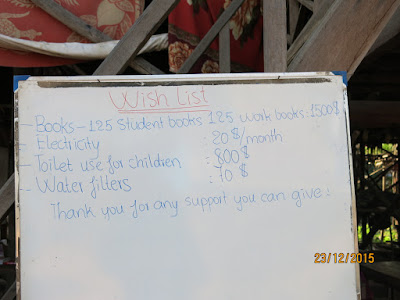 Wish List
- Books - 125 Student books 125 work books : 1500$
- Electricity : 20$/month
- Toilet use for children : 800$
- Water filters : 70$
Thank you for any support you can give!
23/12/2015